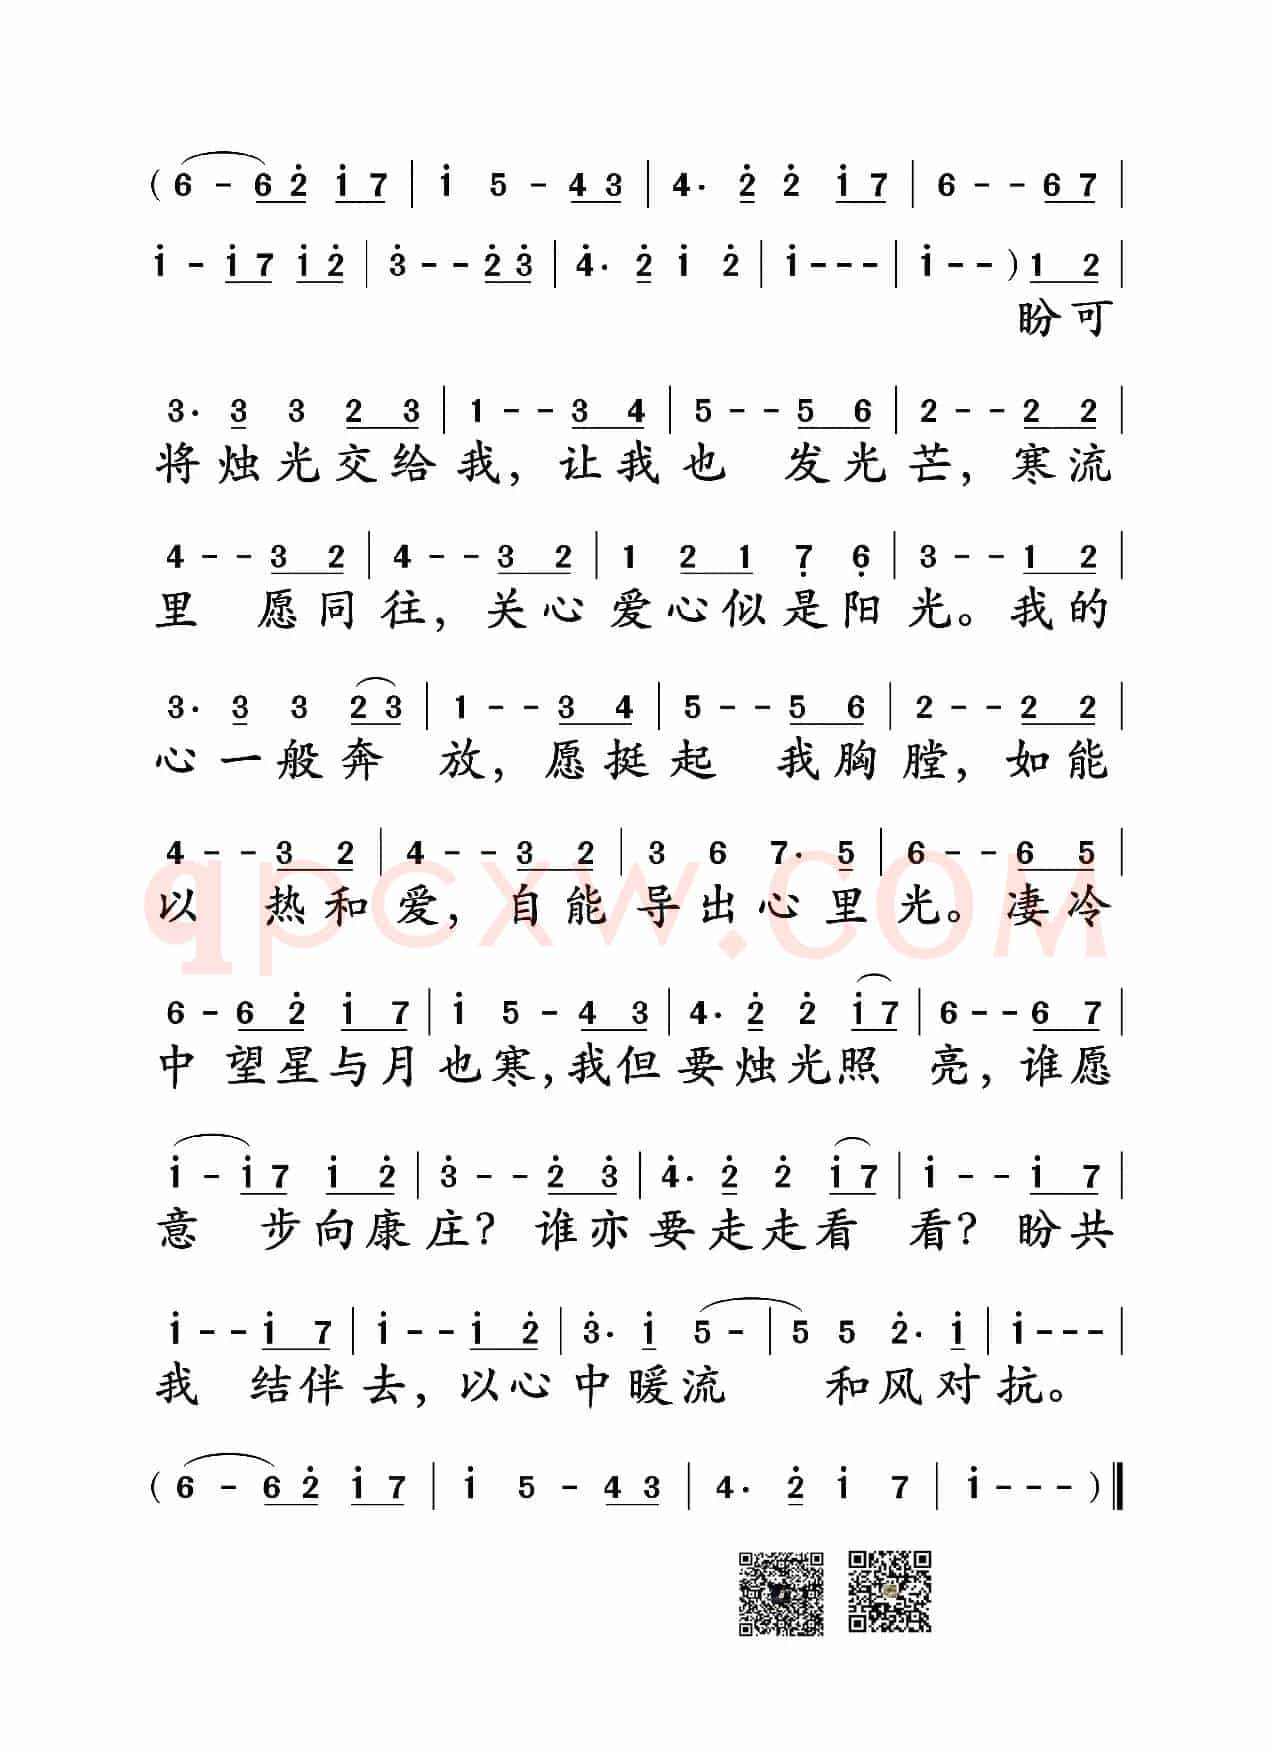 ( 6 - 6 2̇ 1̇ 7 | 1̇ 5 - 4 3 | 4· 2̇ 2̇ 1̇ 7 | 6 - - 6 7 |
1̇ - 1̇ 7 1̇ 2̇ | 3̇ - - 2̇ 3̇ | 4̇· 2̇ 1̇ 2̇ | 1̇ - - - | 1̇ - - ) 1 2 |
盼可
3· 3 3 2 3 | 1 - - 3 4 | 5 - - 5 6 | 2 - - 2 2 |
将烛光交给我，让我也 发光芒，寒流
4 - - 3 2 | 4 - - 3 2 | 1 2 1 7̣ 6̣ | 3 - - 1 2 |
里 愿同往，关心爱心似是阳光。我的
3· 3 3 2 3 | 1 - - 3 4 | 5 - - 5 6 | 2 - - 2 2 |
心一般奔 放，愿挺起 我胸膛，如能
4 - - 3 2 | 4 - - 3 2 | 3 6 7· 5 | 6 - - 6 5 |
以 热和爱，自能导出心里光。凄冷
qpcxw.COM
6 - 6 2̇ 1̇ 7 | 1̇ 5 - 4 3 | 4· 2̇ 2̇ 1̇ 7 | 6 - - 6 7 |
中 望星与月也寒，我但要烛光照 亮，谁愿
1̇ - 1̇ 7 1̇ 2̇ | 3̇ - - 2̇ 3̇ | 4̇· 2̇ 2̇ 1̇ 7 | 1̇ - - 1̇ 7 |
意 步向康庄？谁亦要走走看 看？盼共
1̇ - - 1̇ 7 | 1̇ - - 1̇ 2̇ | 3̇· 1̇ 5 - | 5 5 2̇· 1̇ | 1̇ - - - |
我 结伴去，以心中暖流 和风对抗。
( 6 - 6 2̇ 1̇ 7 | 1̇ 5 - 4 3 | 4· 2̇ 1̇ 7 | 1̇ - - - ) ‖